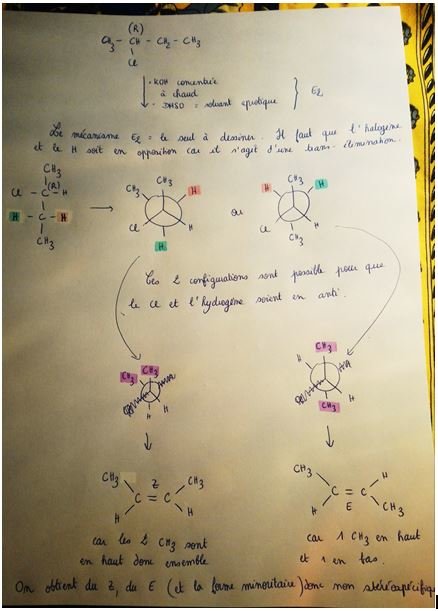 (R)
CH3 - CH - CH2 - CH3
Cl
• KOH concentrée
à chaud
• DMSO = solvant aprotique
E2
Le mécanisme E2 = le seul à dessiner. Il faut que l'halogène
et le H soit en opposition car il s'agit d'une trans-élimination.
CH3
Cl - C - H
(R)
H - C - H
CH3
CH3 CH3 H
Cl H
H
ou
H CH3 H
Cl H
CH3
Ces 2 configurations sont possible pour que
le Cl et l'hydrogène soient en anti.
CH3 CH3
H H
H CH3
CH3 H
CH3 Z CH3
C = C
H H
CH3 H
C = C
H E CH3
car les 2 CH3 sont
en haut donc ensemble.
car 1 CH3 en haut
et 1 en bas.
On obtient du Z, du E (et la forme minoritaire) donc non stéréospécifiq